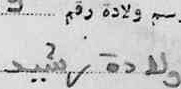 رسم ولادة رقم
ولادة رشيد